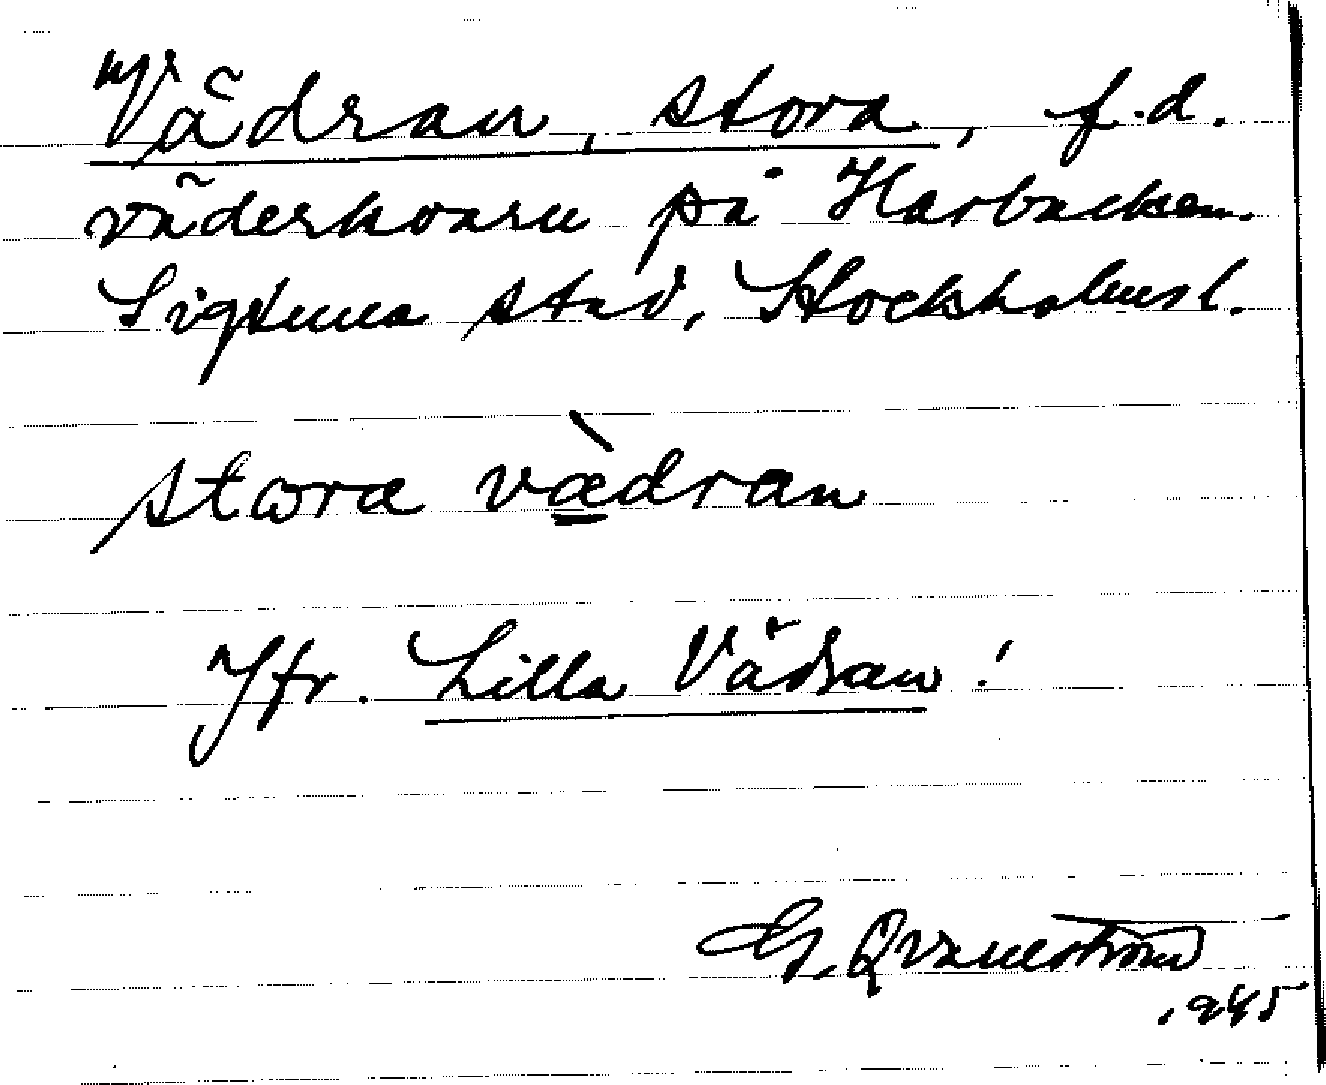 Vädran, stora, f.d.
väderkvarn på Harbacken.
Sigtuna stad, Stockholmsl.
stora vædran
Jfr. Lilla Vädran!
G. Qvarnström
1945